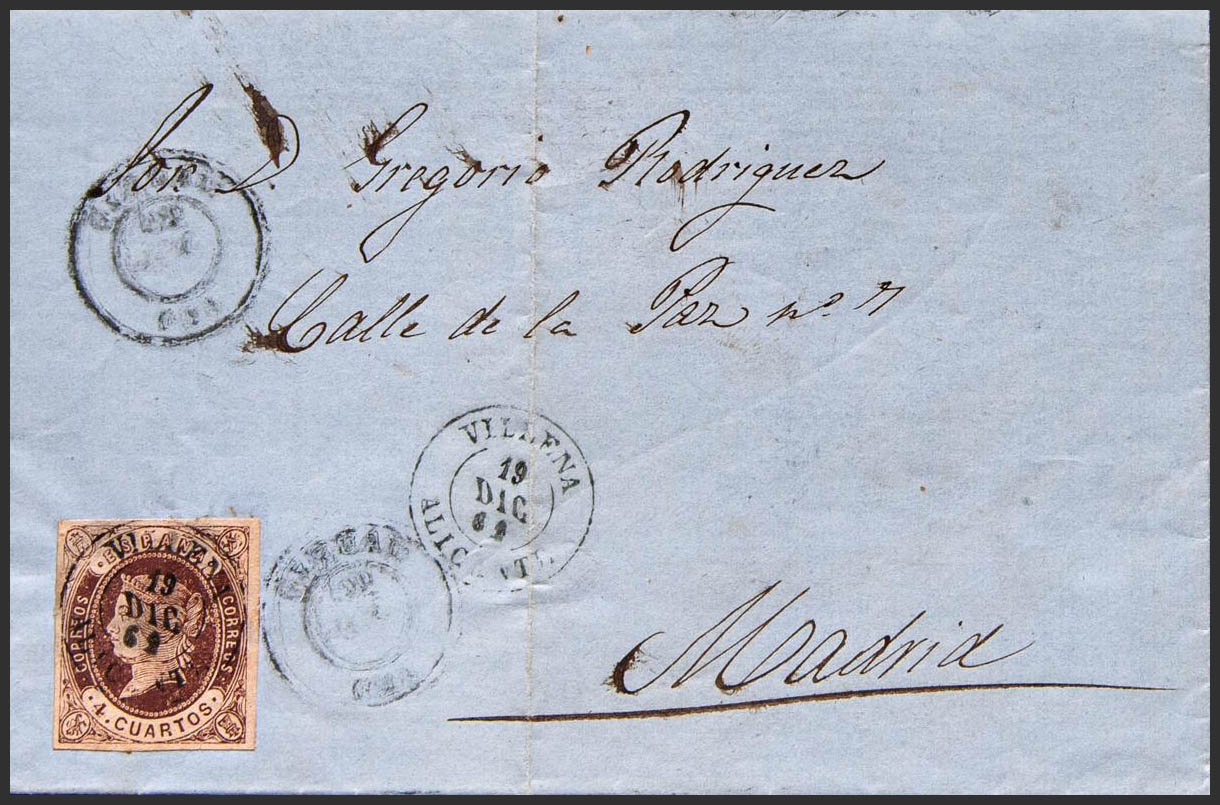 Sor. D. Gregorio Rodriguez
Calle de la Paz nº. 7
VILLENA
19
DIC
62
ALICANTE
ESPAÑA
CORREOS
CORREOS
VILLENA
19
DIC
62
4. CUARTOS.
Madrid